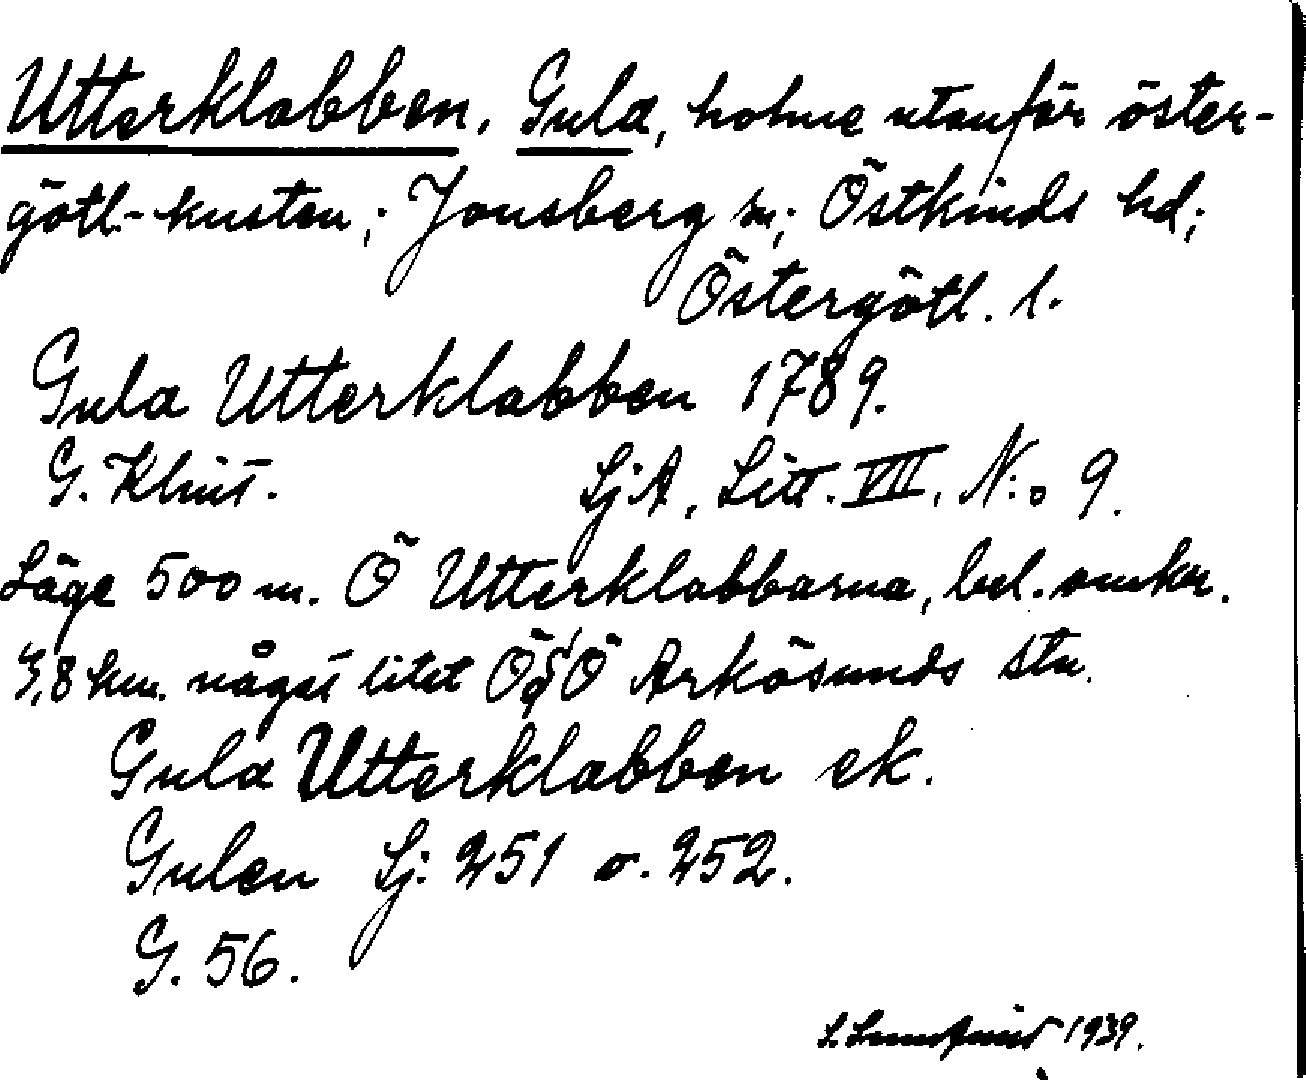 Utterklabben, Gula, holme utanför öster-
götl.-kusten; Jonsberg sn; Östkinds hd;
Östergötl. l.
Gula Utterklabben 1789.
G. Klint. SjA, Litt. VII, N:o 9.
Läge 500 m. Ö Utterklabbarna, bel. omkr.
3,8 km. något litet Ö§Ö Arkösunds stn.
Gula Utterklabben ek.
Gulen Sj: 251 o. 252.
G. 56.
S. Lundqvist 1939.